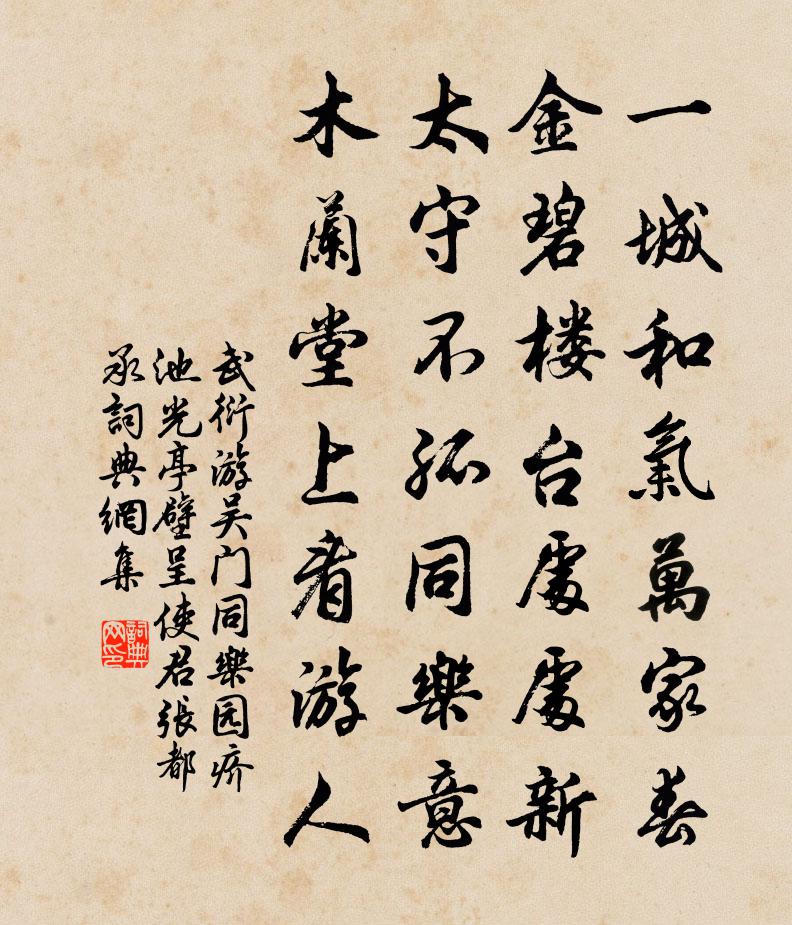 一城和氣萬家春
金碧楼台處處新
太守不孤同樂意
木蘭堂上看游人
武衍游吴门同樂园疥
池光亭壁呈使君張都
承詞典網集
詞典网印